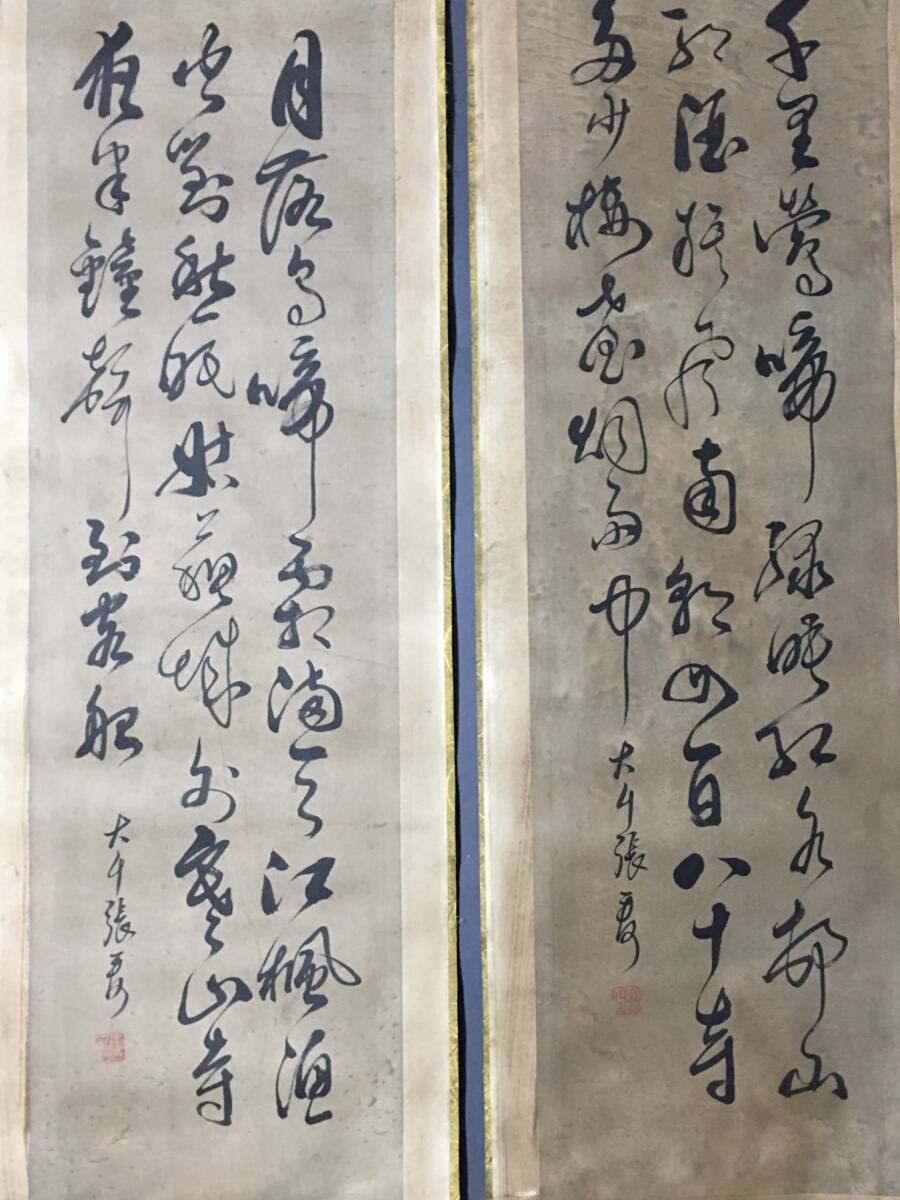 千里鶯啼緑映紅水邨山
郭酒旗風南朝四百八十寺
多少樓臺烟雨中
大千張爰
月落烏啼霜滿天江楓漁
火對愁眠姑蘇城外寒山寺
夜半鐘聲到客船
大千張爰